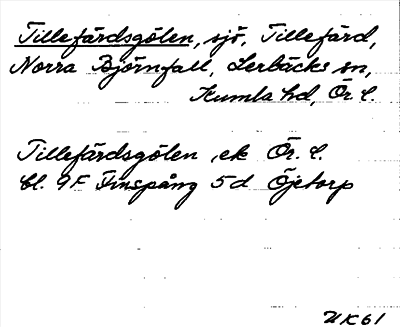 Tillefärdsgölen, sjö, Tillefärd,
Norra Björnfall, Lerbäcks sn,
Kumla hd, Ör. l.
Tillefärdsgölen, ek Ör. l.
bl. 9F Finspång 5d Öjetorp
UK61